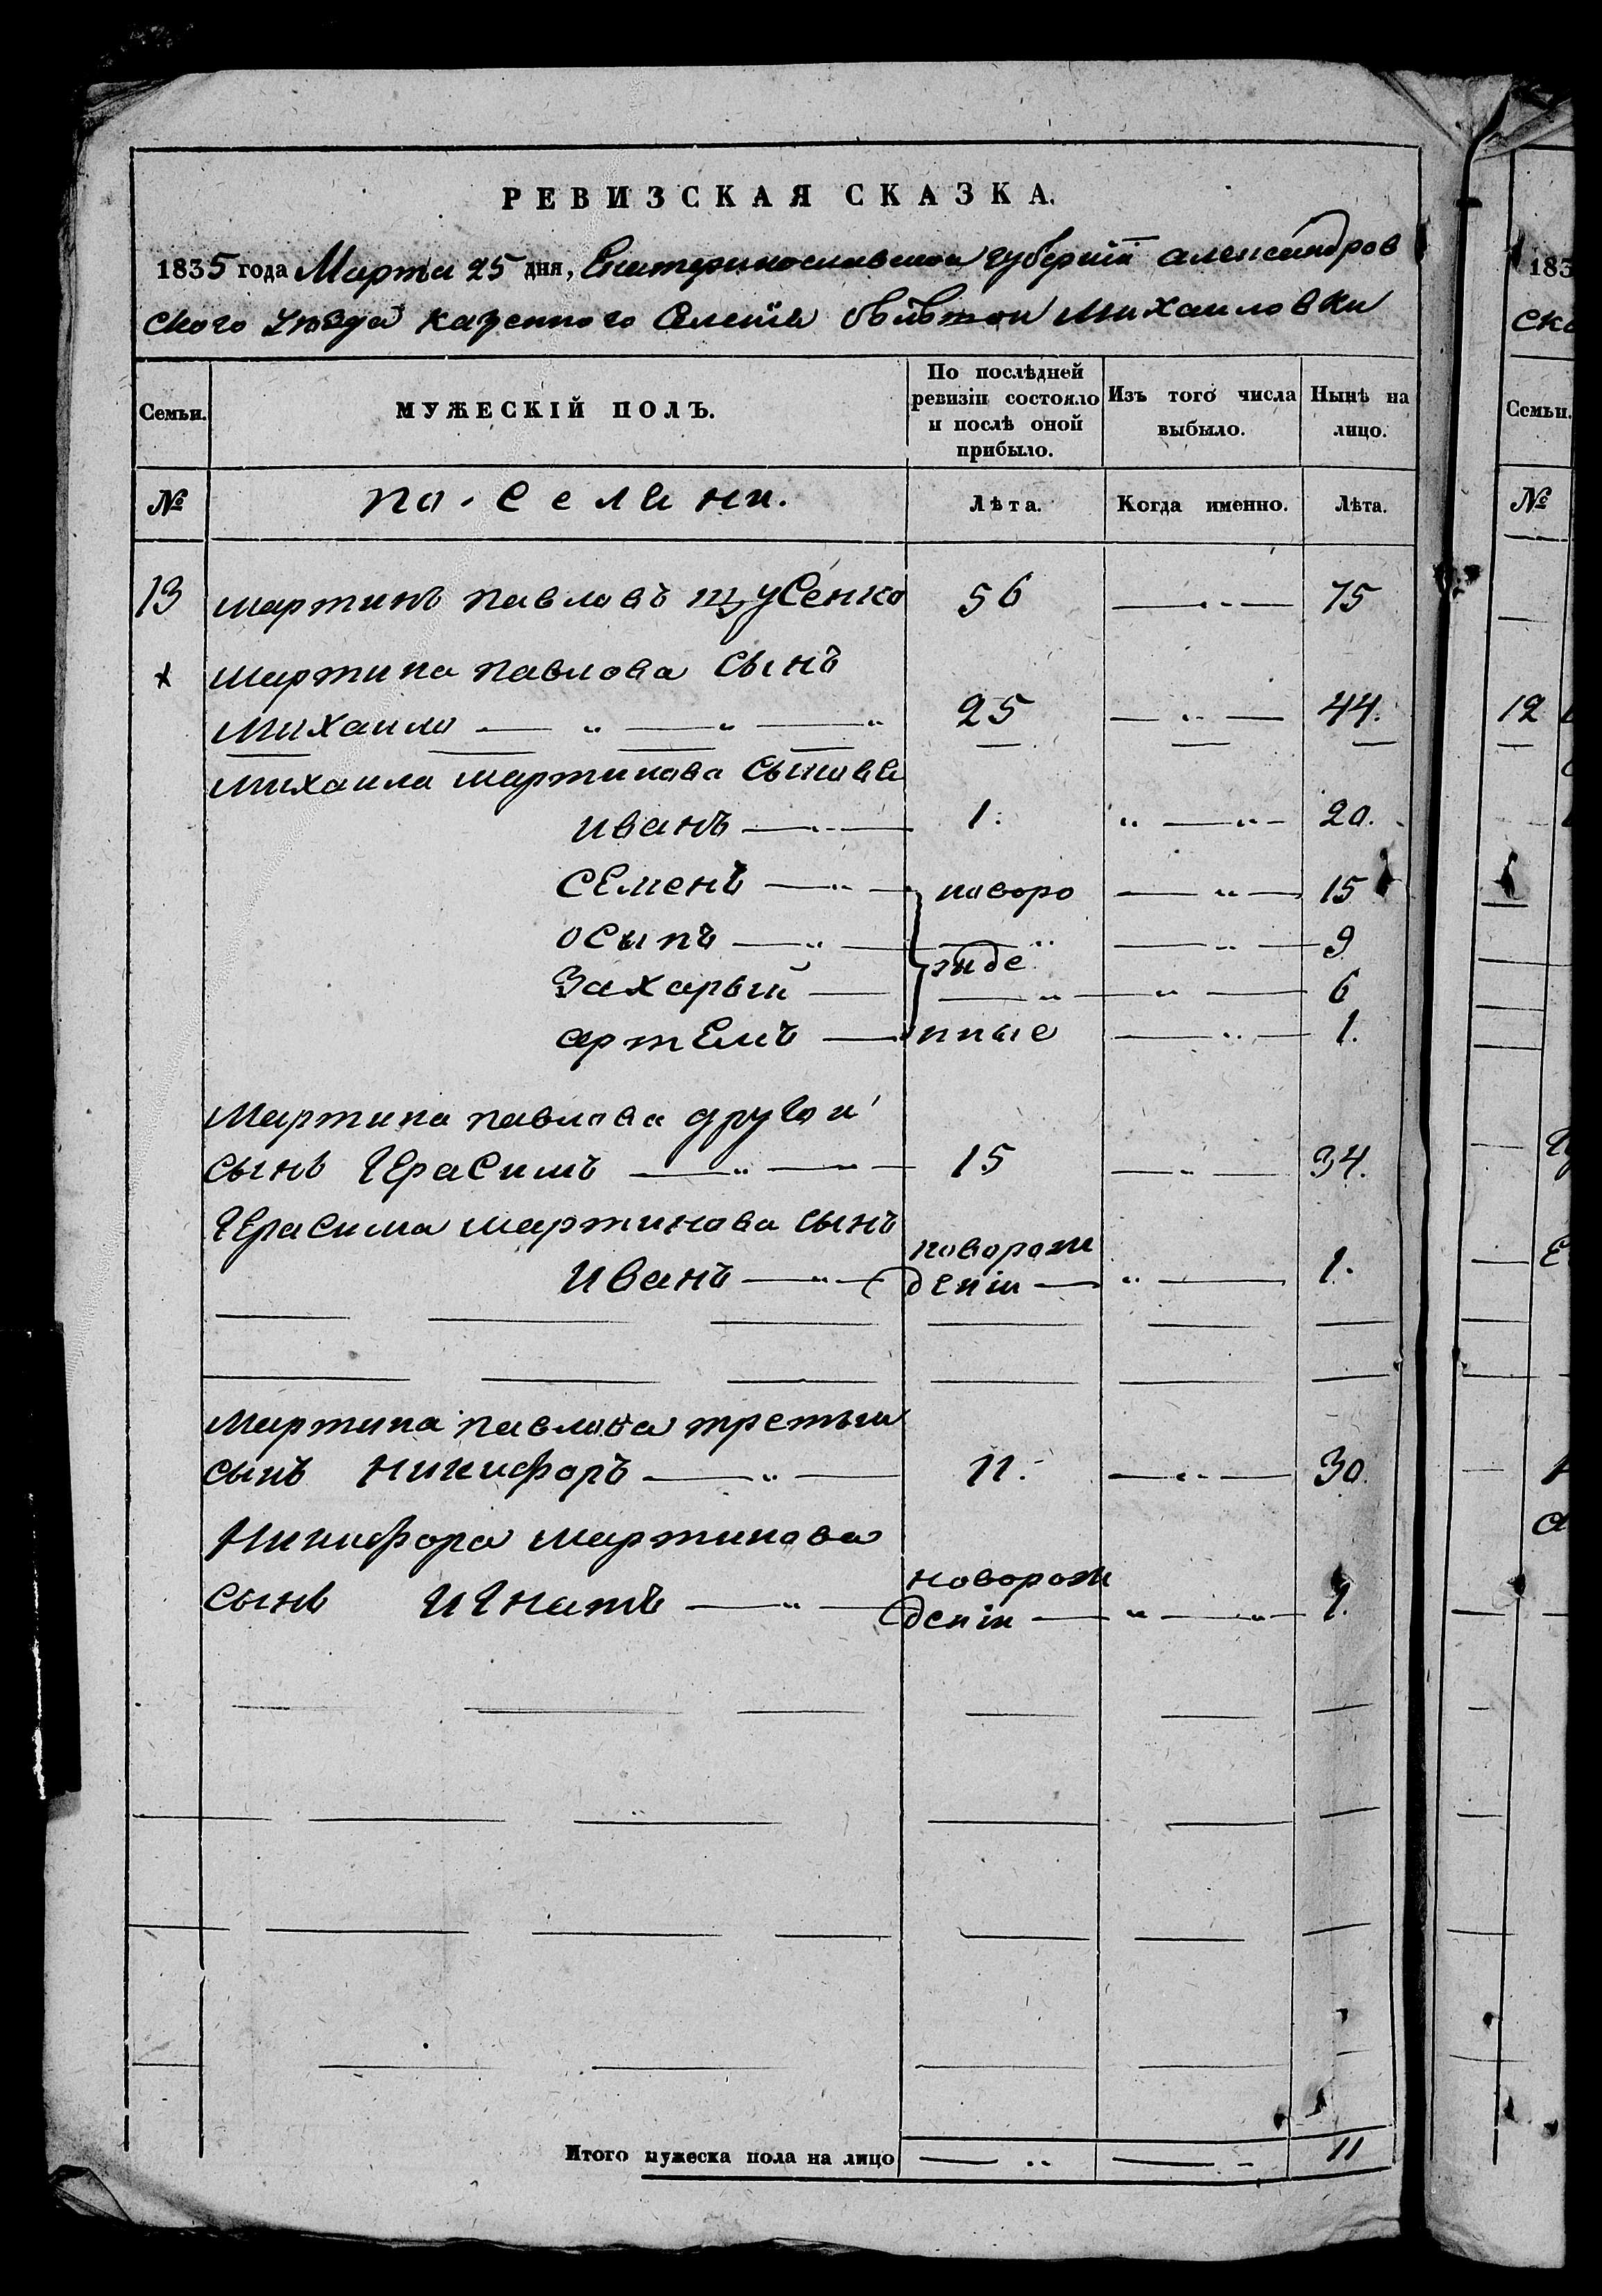 РЕВИЗСКАЯ СКАЗКА.
1835 года Марта 25 дня, Екатеринославской губерніи александров
ского уезда казенного Селенія Михаиловки
Семьи. МУЖЕСКІЙ ПОЛЪ. По послѣдней ревизіи состояло и послѣ оной прибыло. Изъ того числа выбыло. Ныне на лицо.
№ по. Селяни. Лѣта. Когда именно. Лѣта.
13 мартинъ павловъ 56 75
мартина павлова сынъ
Михаило 25 44.
михаила мартинова сыновя
иванъ 1. 20.
семенъ новоро 15
осыпъ 9
жде
Захарый 6
артемъ нные 1.
мартина павлова другой
сынъ Герасимъ 15 34.
Герасима мартинова сынъ
новорож
иванъ деніи 1.
мартина павлова третьи
сынъ Никифоръ 11. 30.
Никифора мартинова
новорож
сынъ Игнатъ деніи 1.
Итого мужеска пола на лицо 11
183
ско
Семьи.
№
12